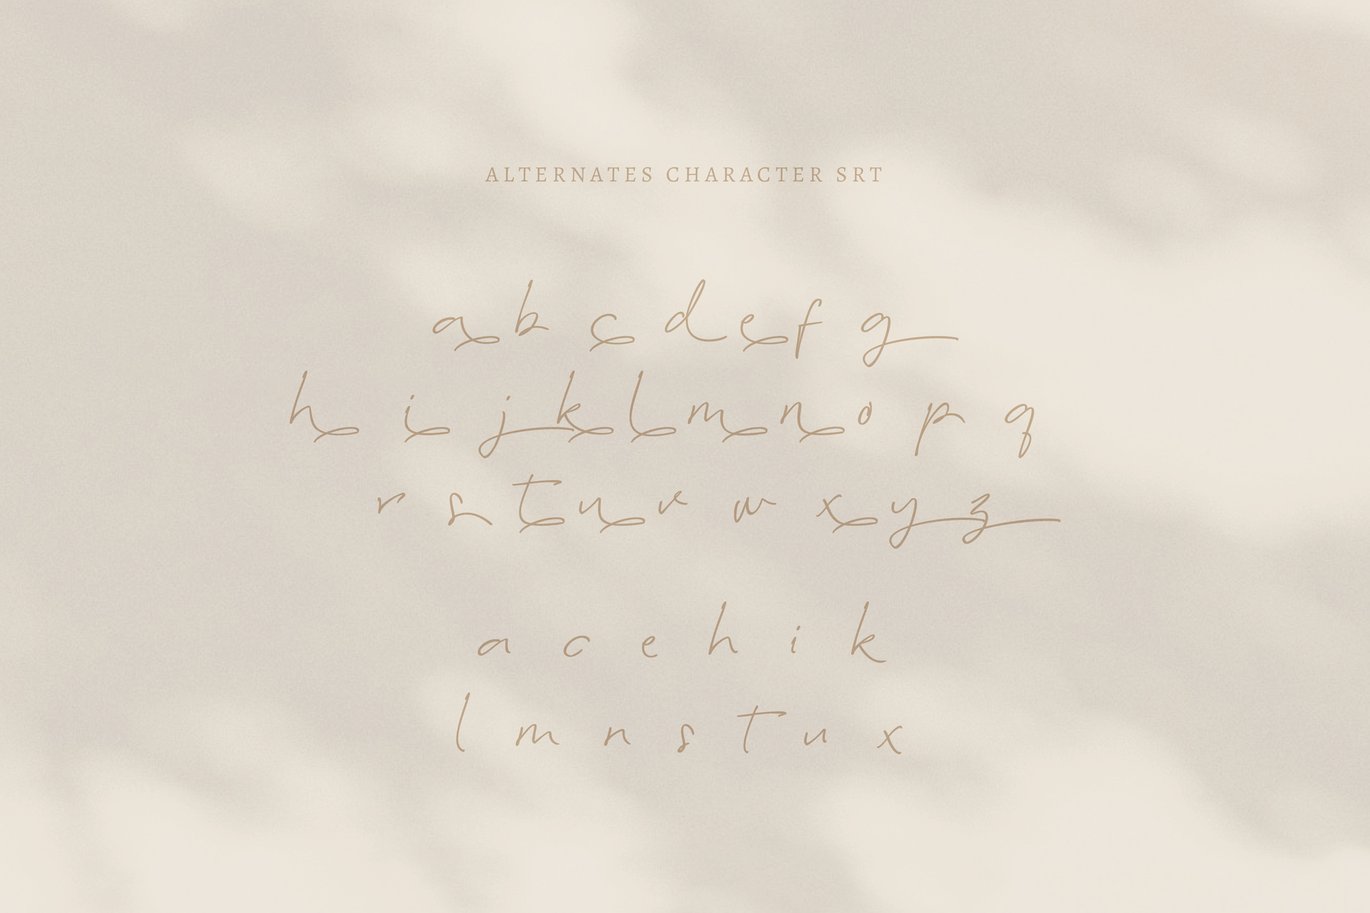 ALTERNATES CHARACTER SRT
a b c d e f g
h i j k l m n o p q
r s t u v w x y z
a c e h i k
l m n s t u x